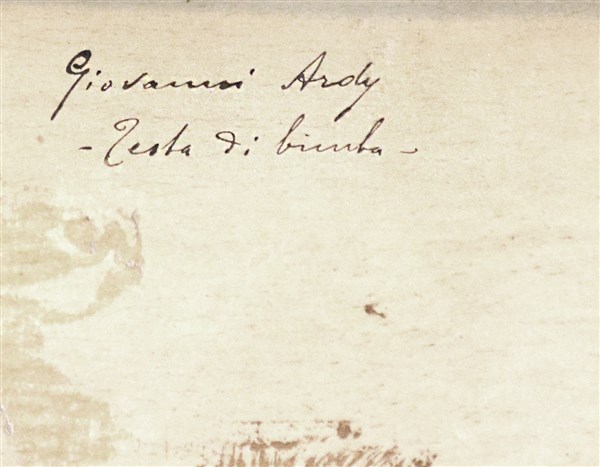 Giovanni Ardy
- Testa di bimba -